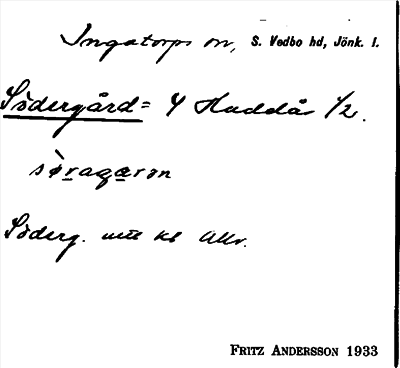 Ingatorps sn, S. Vedbo hd, Jönk. l.
Södergård = Y Haddås 1/2.
sò̱ragaṟǝn
Söderg. utt kt Allv.
FRITZ ANDERSSON 1933